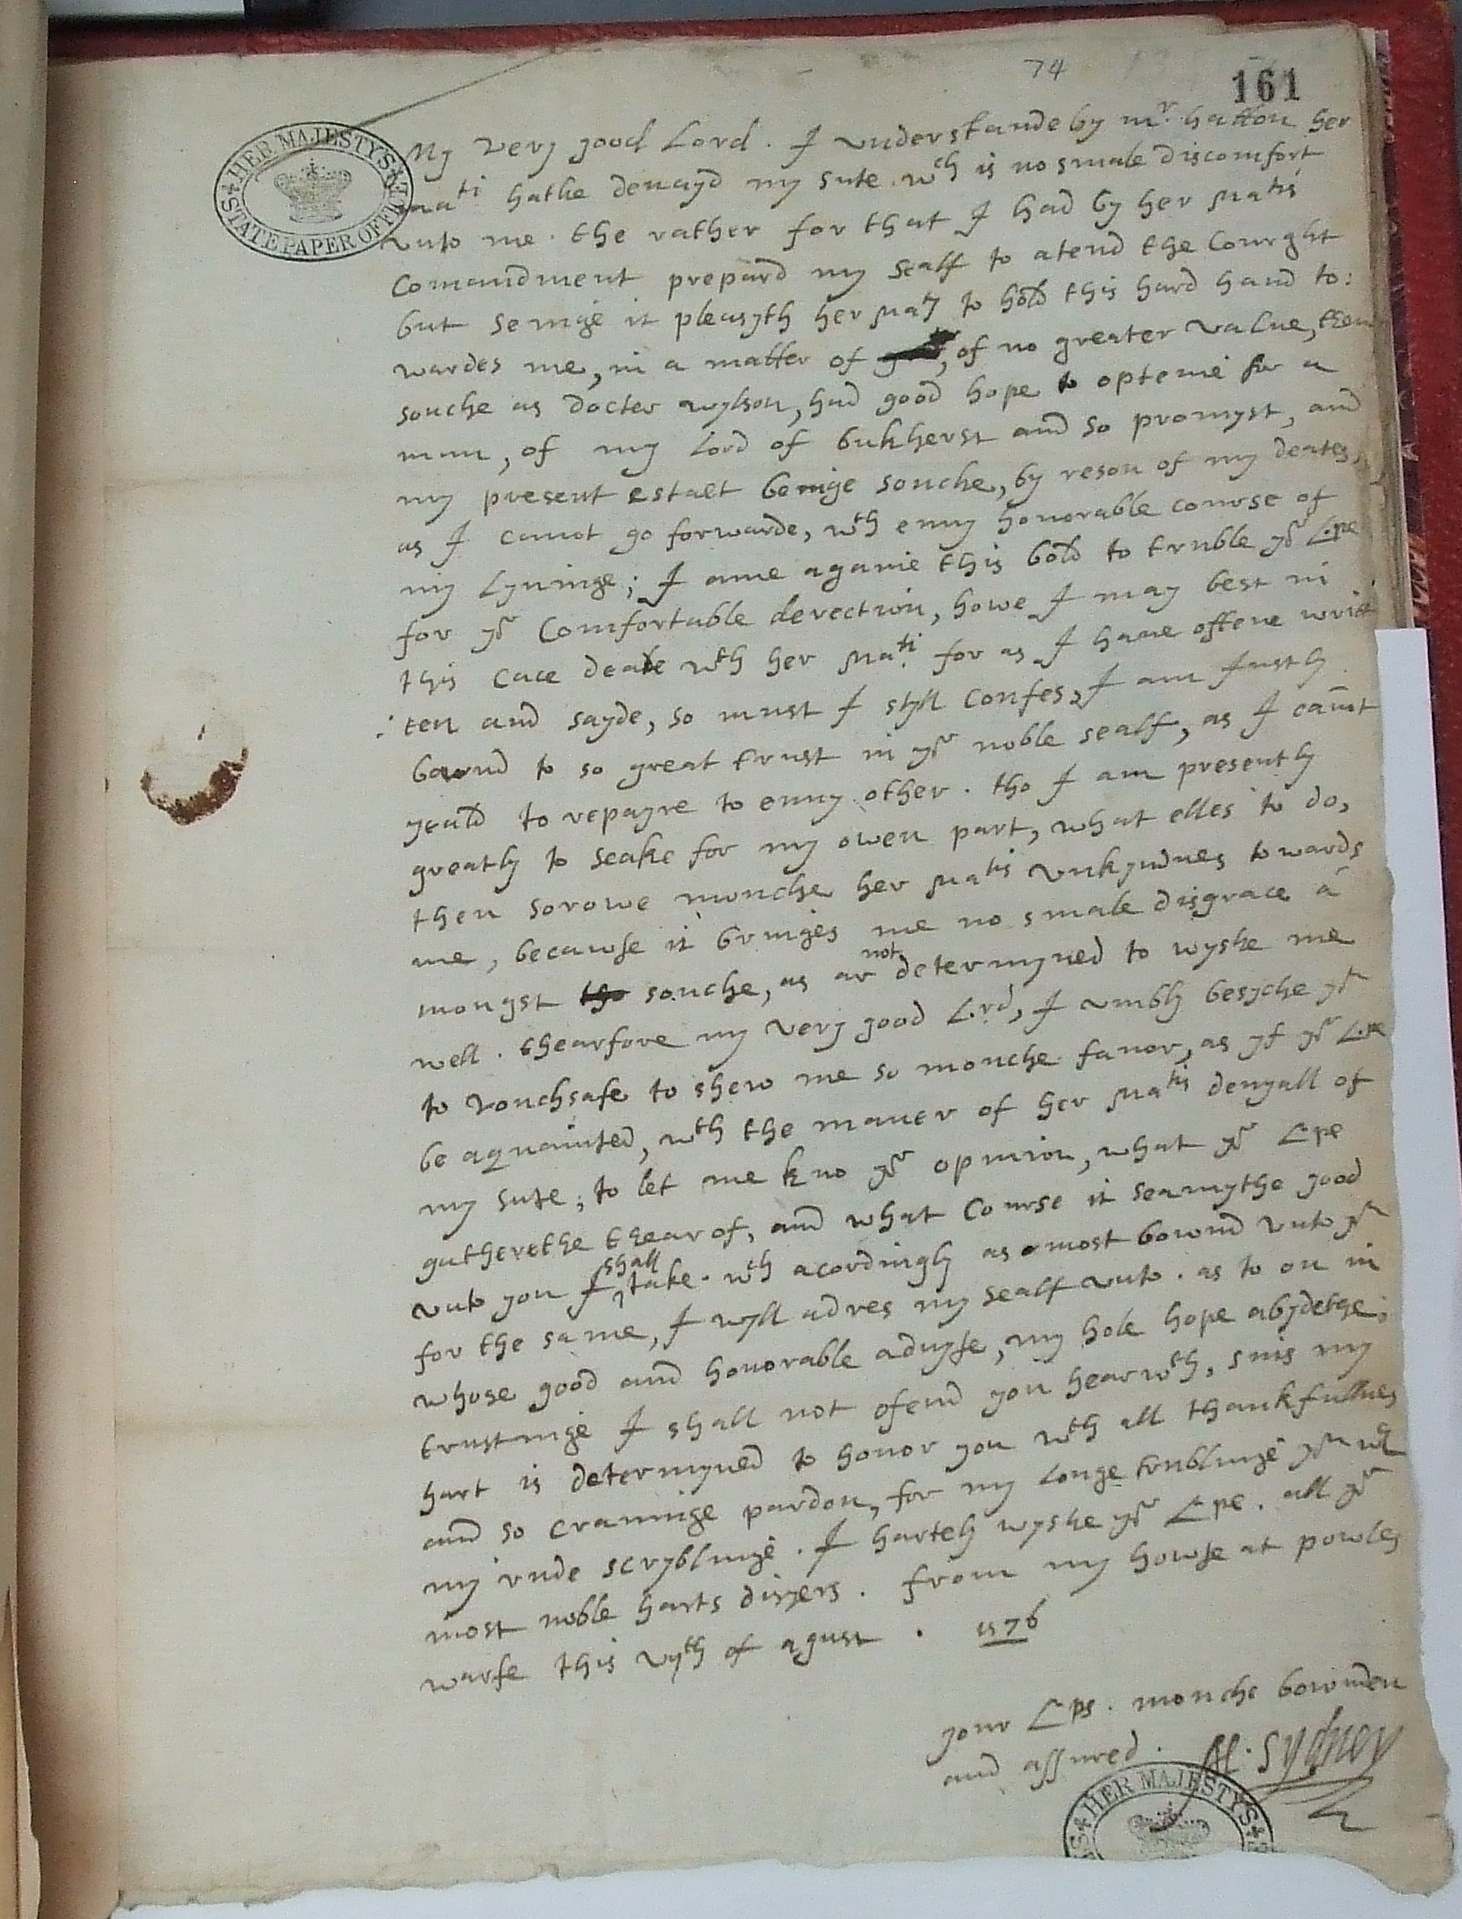 74
161
HER MAJESTY'S STATE PAPER OFFICE
My very good Lord. I vnderstande by mr. hatton her
mati hathe denayd my sute. wch is no smale discomfort
vnto me. the rather for that I had by her Matis
Comandment prepard my sealf to atend the Courght
but seinge it pleasyth her Maty to hold this hard hand to:
wardes me, in a matter of , of no greater value, then
souche as docter wylson, had good hope to opteine for a
mun, of my Lord of bukherst and so promyst, and
my present estaet beinge souche, by reson of my deates,
as I canot go forwarde, wth enny honorable course of
my Lyvinge; I ame againe this bold to truble yor Lpe
for yor Comfortable derection, howe I may best in
this Cace deale wth her Mati. for as I have offtene writ
:ten and sayde, so must I styll Confes, I am Justly
bownd to so great trust in yor noble sealf, as I cannt
yeald to repayre to enny other. tho I am presently
greatly to seake for my owen part, what elles to do,
then sorowe mouche her Matis vnkyndnes towards
me, becawse it bringes me no smale disgrace a
mongst tho souche, as ar not determyned to wyshe me
well. thearfore my very good Lrd, I vmbly besyche yor
to vouchsafe to shew me so mouche favor, as yf yor Lpe
be aqvainted, wth the maner of her Matis denyall of
my sute; to let me kno yor opinion, what yor Lpe
gatherethe thearof, and what Course it seamythe good
vnto you I shall take. wch acordingly as most bownd vnto yor
for the same, I wyll adres my sealf vnto. as to on in
whose good and honorable advyse, my hole hope abydethe;
trustinge I shall not ofend you hearwth, sins my
hart is determyned to honor you wth all thankfullnes
and so cravinge pardon, for my longe trublinge yor wth
my rude scryblinge. I hartely wyshe yor Lpe. all yor
most noble harts disyers. from my howse at powles
warfe this vijth of agust. 1576
your Lps. mouche bownden
and assured. H. Sydney
HER MAJESTY'S